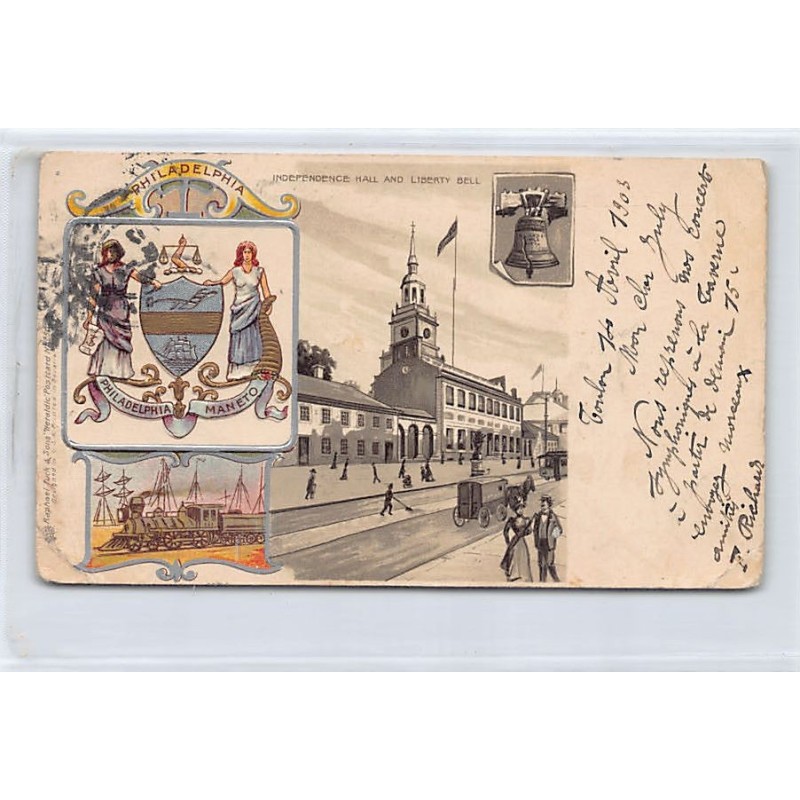 PHILADELPHIA
INDEPENDENCE HALL AND LIBERTY BELL
PHILADELPHIA MANETO
Raphael Tuck & Sons' "Heraldic" Postcard
Toulon Avril 1903
Mon cher July
Nous reprenons nos Concerts
Symphoniques à la Taverne
à partir de demain 15 c
envoyez morceaux
amitiés
P. Richard